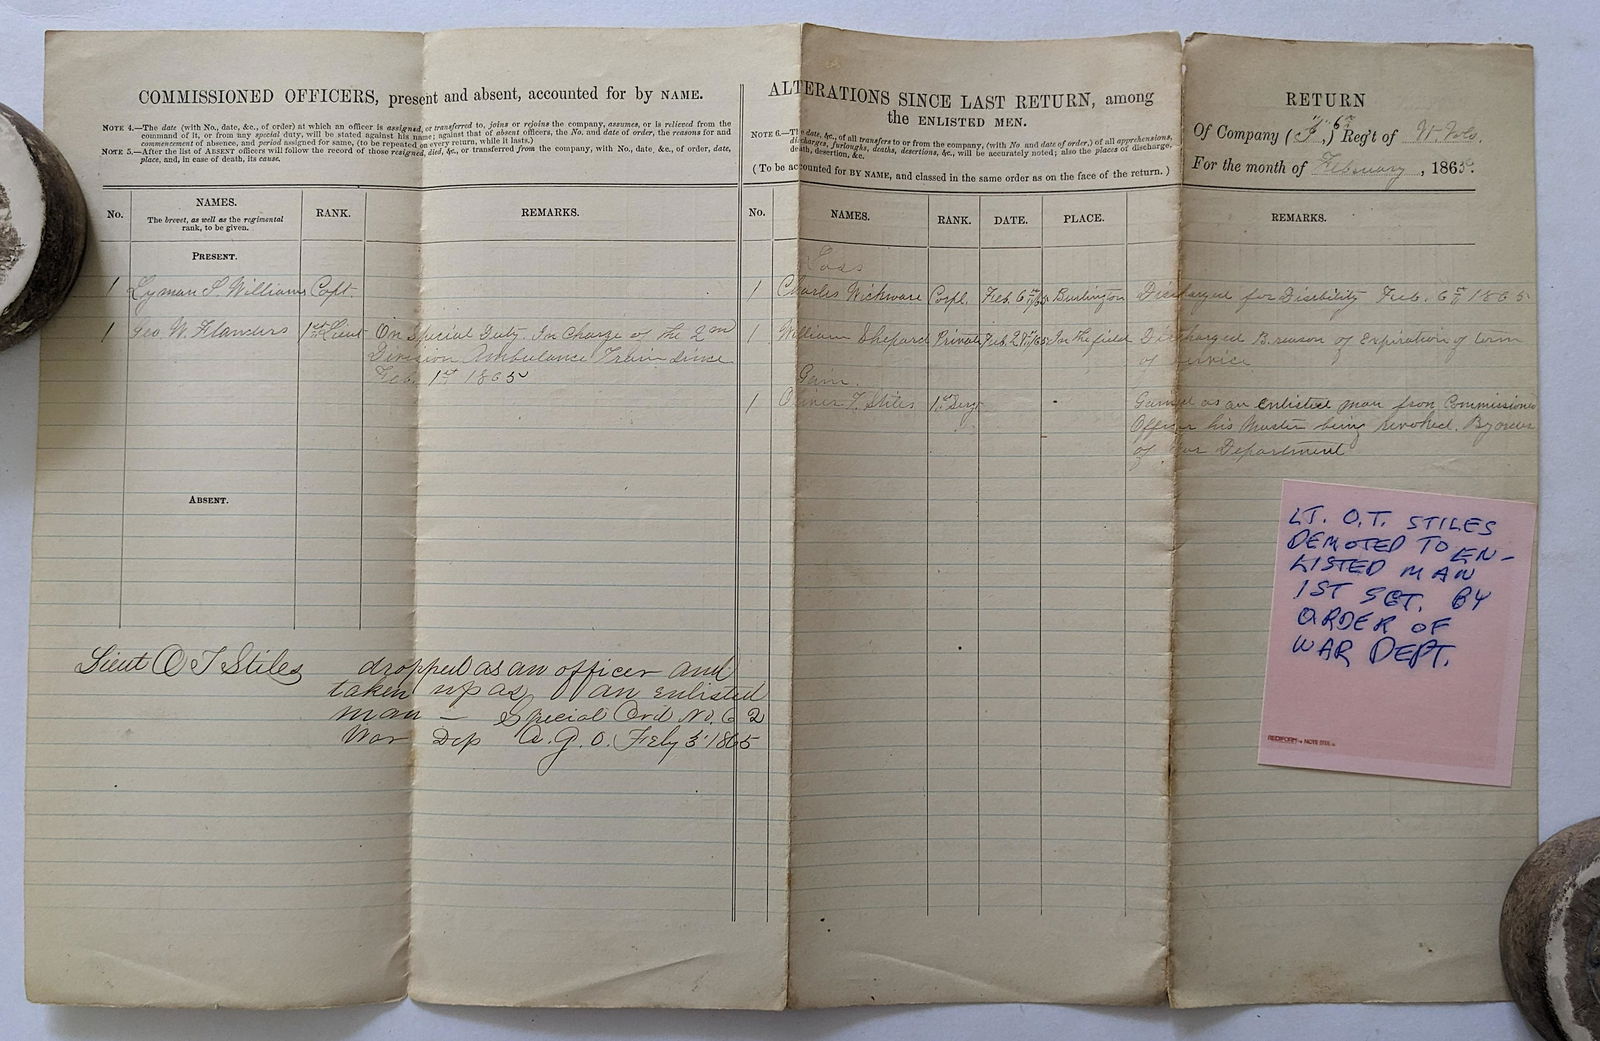 COMMISSIONED OFFICERS, present and absent, accounted for by NAME.
NOTE 4.—The date (with No., date, &c., of order) at which an officer is assigned, or transferred to, joins or rejoins the company, assumes, or is relieved from the
command of it, or from any special duty, will be stated against his name; against that of absent officers, the No. and date of order, the reasons for and
commencement of absence, and period assigned for same, (to be repeated on every return, while it lasts.)
NOTE 5.—After the list of ABSENT officers will follow the record of those resigned, died, &c., or transferred from the company, with No., date, &c., of order, date,
place, and, in case of death, its cause.
No.
NAMES.
The brevet, as well as the regimental
rank, to be given.
RANK.
REMARKS.
PRESENT.
1 Lyman S. Williams Capt.
1 Geo W. Flanders 1st Lieut On Special Duty. In Charge of the 2nd
Division Ambulance Train since
Feb. 1st 1865
ABSENT.
Lieut O T Stiles dropped as an officer and
taken up as an enlisted
man — Special Ord No. 62
War Dep A. G. O. Feby 3 1865
ALTERATIONS SINCE LAST RETURN, among
the ENLISTED MEN.
NOTE 6.—The date, &c., of all transfers to or from the company, (with No. and date of order,) of all apprehensions,
discharges, furloughs, deaths, desertions, &c., will be accurately noted; also the places of discharge,
death, desertion, &c.
(To be accounted for BY NAME, and classed in the same order as on the face of the return.)
No.
NAMES.
RANK.
DATE.
PLACE.
Loss
1 Charles Wickware Corpl. Feb. 6th /65 Burlington Discharged for Disability Feb. 6th 1865
1 William Shepard Private Feb. 27th/65 In the field Discharged B. reason of Expiration of term
of service
Gain.
1 Oliver T. Stiles 1st Sergt Gained as an enlisted man from Commissioned
Officer his Muster being revoked. By order
of War Department
RETURN
Of Company ("F",) 6th Reg't of Vt. Vols.
For the month of February, 1865.
REMARKS.
LT. O.T. STILES
DEMOTED TO EN-
LISTED MAN
1ST SGT. BY
ORDER OF
WAR DEPT.
REDIFORM